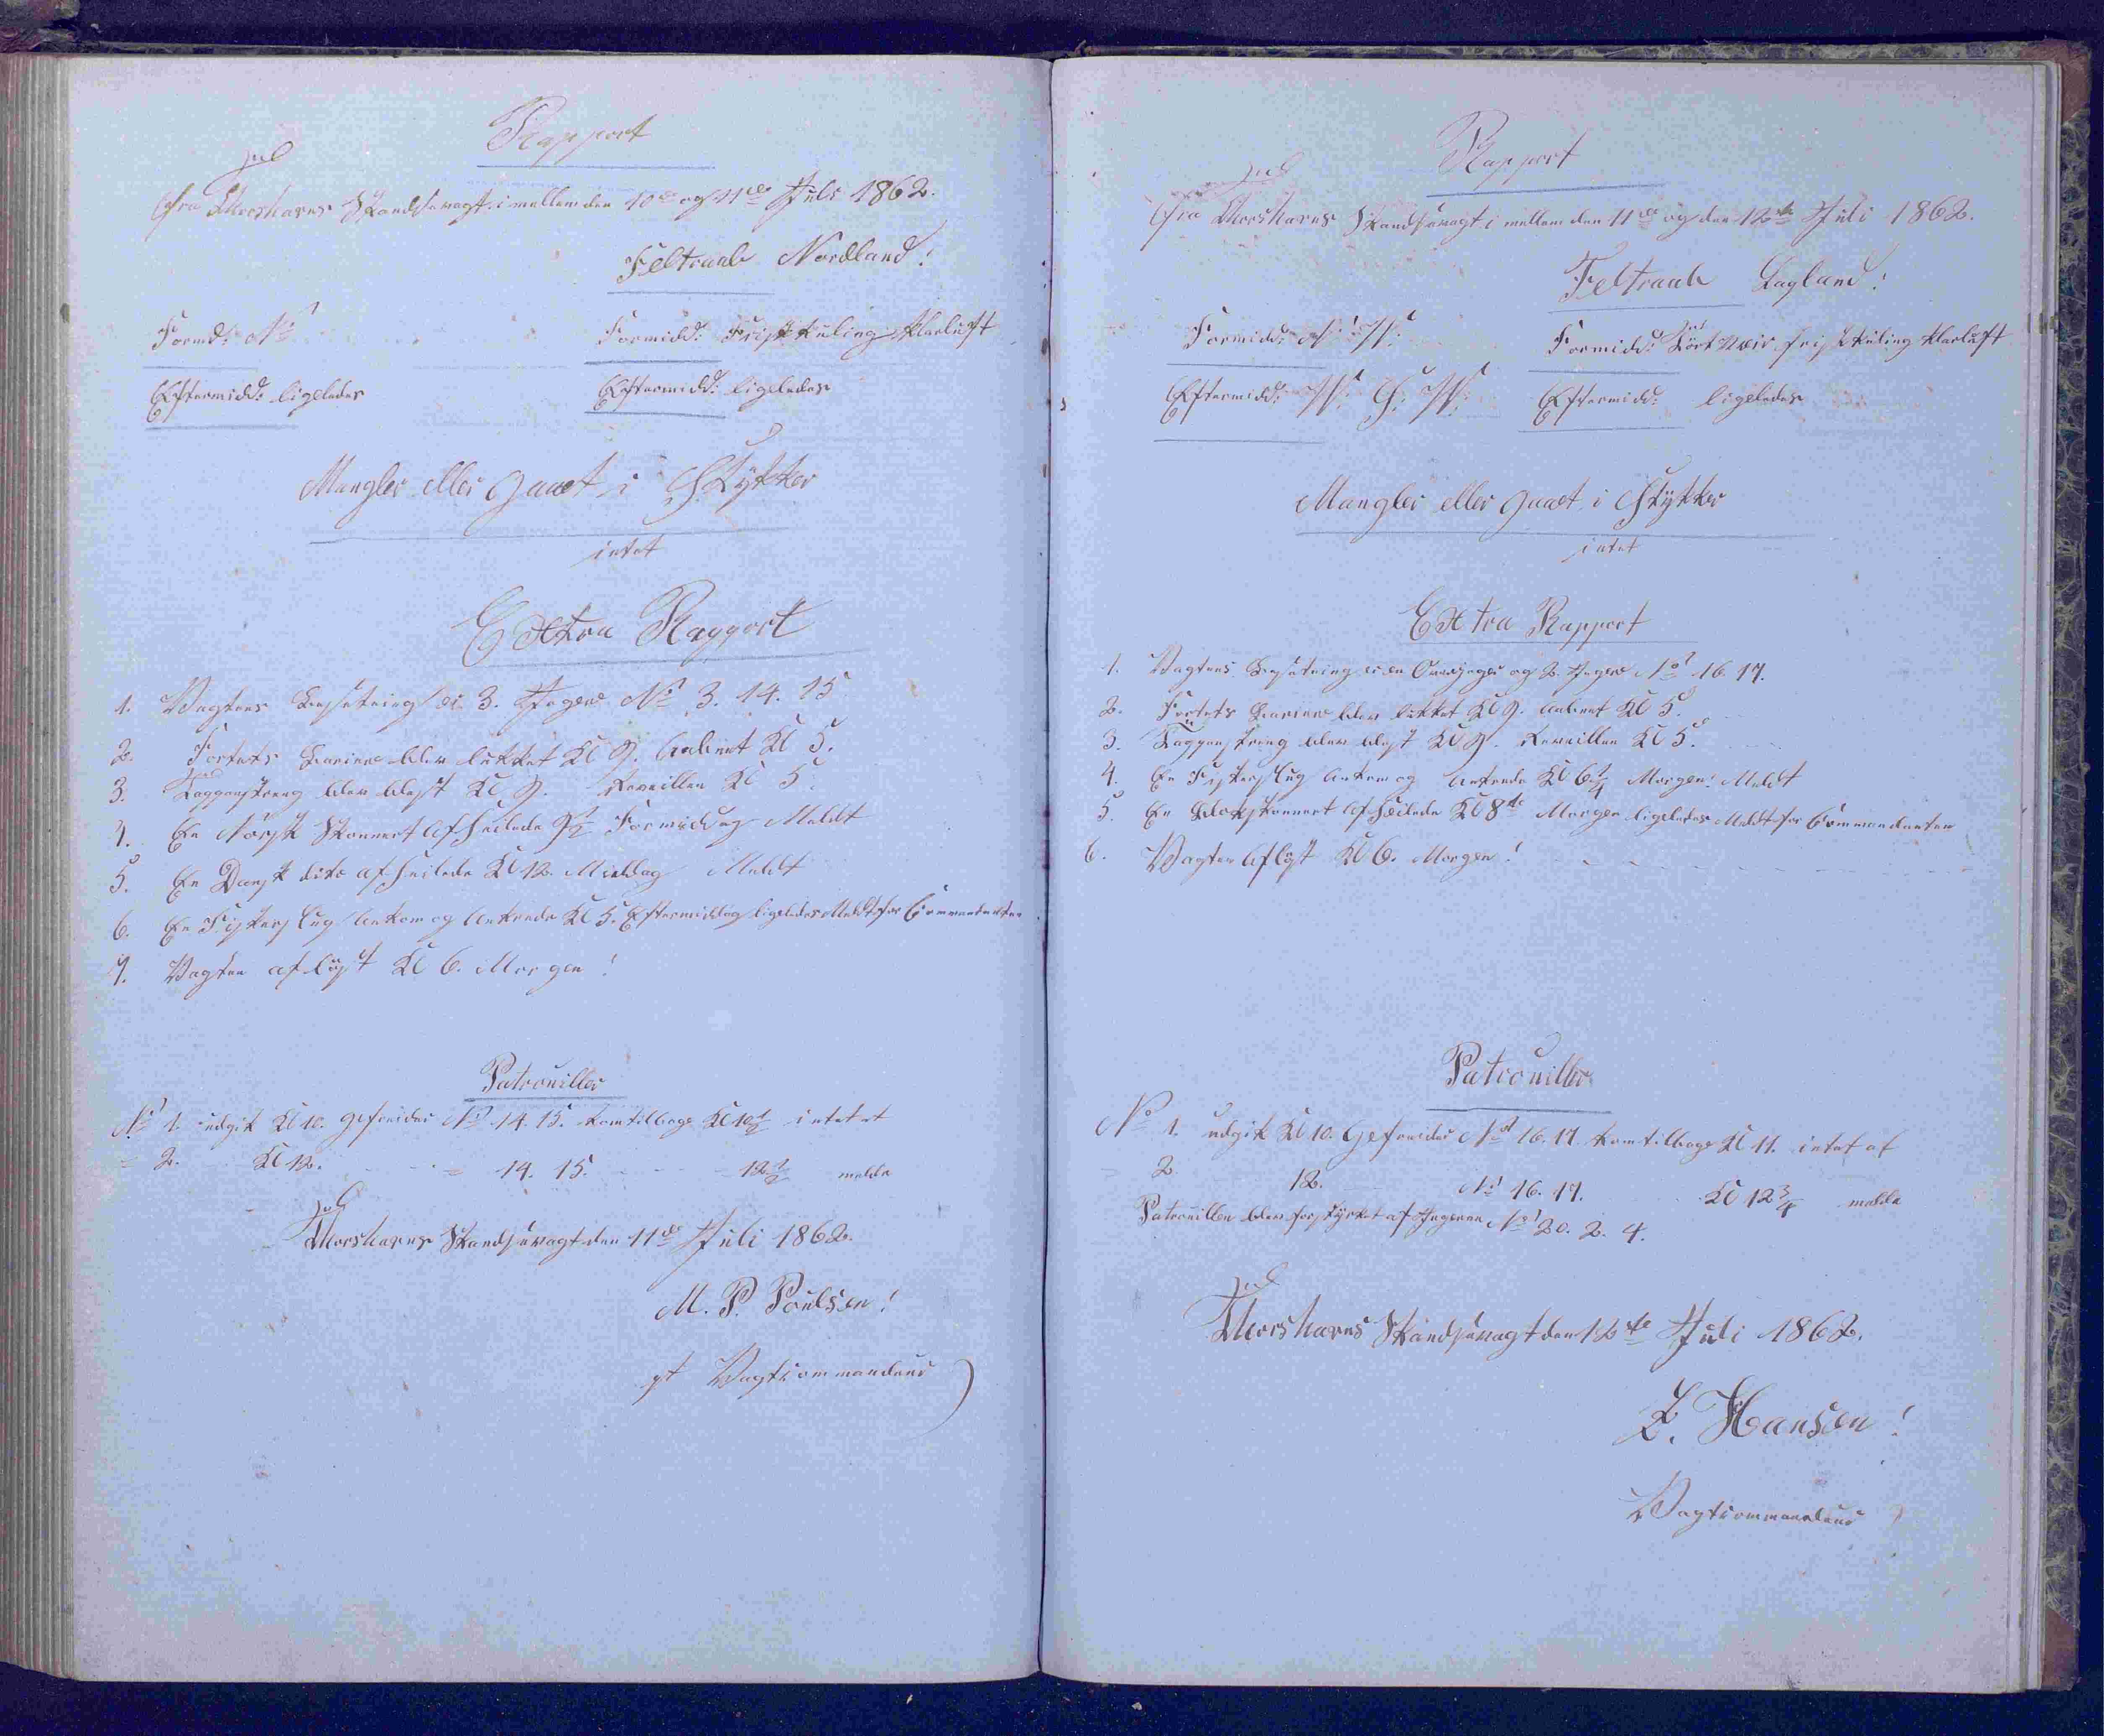 Rapport
fra Thorshavns Skandsevagt imellem den 10de og 11te Juli 1862.
Feltraab Nordland!
Formd: N
Formidd: Frisk Kuling klarluft
Eftermidd: ligeledes
Eftermidd: ligeledes
Mangler eller Havt i Stykker
intet
Extra Rapport
1. Vagtens Besætning er 3. Jæger No 3. 14. 15
2. Fortets Barriere blev lukket Kl 9. aabnet Kl 5.
3. Tappenstreng blev blæst Kl 9. Reveillen Kl 5.
4. En Norsk Skonnert afseilede 9½ Formiddag Meldt
5. En Dansk dito afseilede Kl 12. Middag Meldt
6. En Fiskerslup ankom og ankrede Kl 5. Eftermiddag ligeledes Meldt for Commandanten
7. Vagten afløst Kl 6. Morgen!
Patrouiller
No 1. udgik Kl 10. Gefreider No 14. 15. kom tilbage Kl 10½ intet at
= 2. Kl 12. = 14. 15. 12½ melde
Thorshavns Skandsevagt den 11te Juli 1862.
M. P. Poulsen!
gt Vagtcommandeur
Rapport
fra Thorshavns Skandsevagt i mellem den 11te og den 12te Juli 1862.
Feltraab
Formidd: N: W:
Formidd: Tört Veir frisk Kuling klarluft
Eftermidd: W: S: W:
Eftermidd: ligeledes
Mangler eller Havt i Stykker
intet
Extra Rapport
1. Vagtens Besætning er en Overjæger og 2. Jæger No 16. 17.
2. Fortets Barriere blev lukket Kl 9. aabnet Kl 5.
3. Tappenstreng blev blæst Kl 9. Reveillen Kl 5.
4. En Fiskerslup ankom og ankrede Kl 6¼ Morgen! Meldt
5. En Skonnert afseilede Kl 8te Morgen ligeledes Meldt for Commandanten
6. Vagten afløst Kl 6. Morgen!
Patrouiller
No 1. udgik Kl 10. Gefreider No 16. 17. kom tilbage Kl 11. intet at
2. 12. No 16. 17. Kl 12¾ melde
Patrouillen blev forstyrket af Jægerne No 20. 2. 4.
Thorshavns Skandsevagt den 12te Juli 1862.
Z. Hansen!
Vagtcommandeur